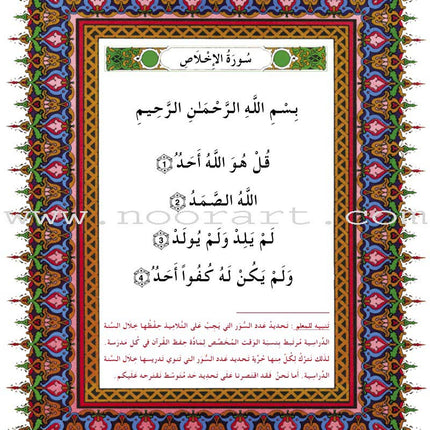 سُورَةُ الإِخْلَاصِ
بِسْمِ اللَّهِ الرَّحْمَـٰنِ الرَّحِيمِ
قُلْ هُوَ اللَّهُ أَحَدٌ ١
اللَّهُ الصَّمَدُ ٢
www.noorart.com
لَمْ يَلِدْ وَلَمْ يُولَدْ ٣
وَلَمْ يَكُنْ لَهُ كُفُواً أَحَدٌ ٤
تنبيه للمعلم : تحديدُ عدد السُّوَر التي يَجبُ على التلاميذ حفظُها خلالَ السنة
الدِّراسية مُرتبط بنسبَة الوَقت المُخصَّص لمَادَّة حفظ القُرآن في كُل مدرسة.
لذلك نترُكُ لكُلٍّ منها حُرِّيَّة تحديد عدد السُّوَر التي تنوي تدريسها خلالَ السنة
الدِّراسية. أما نحنُ فقد اقتصرنا على تحديد حد مُتوسّط نقترحه عليكم.